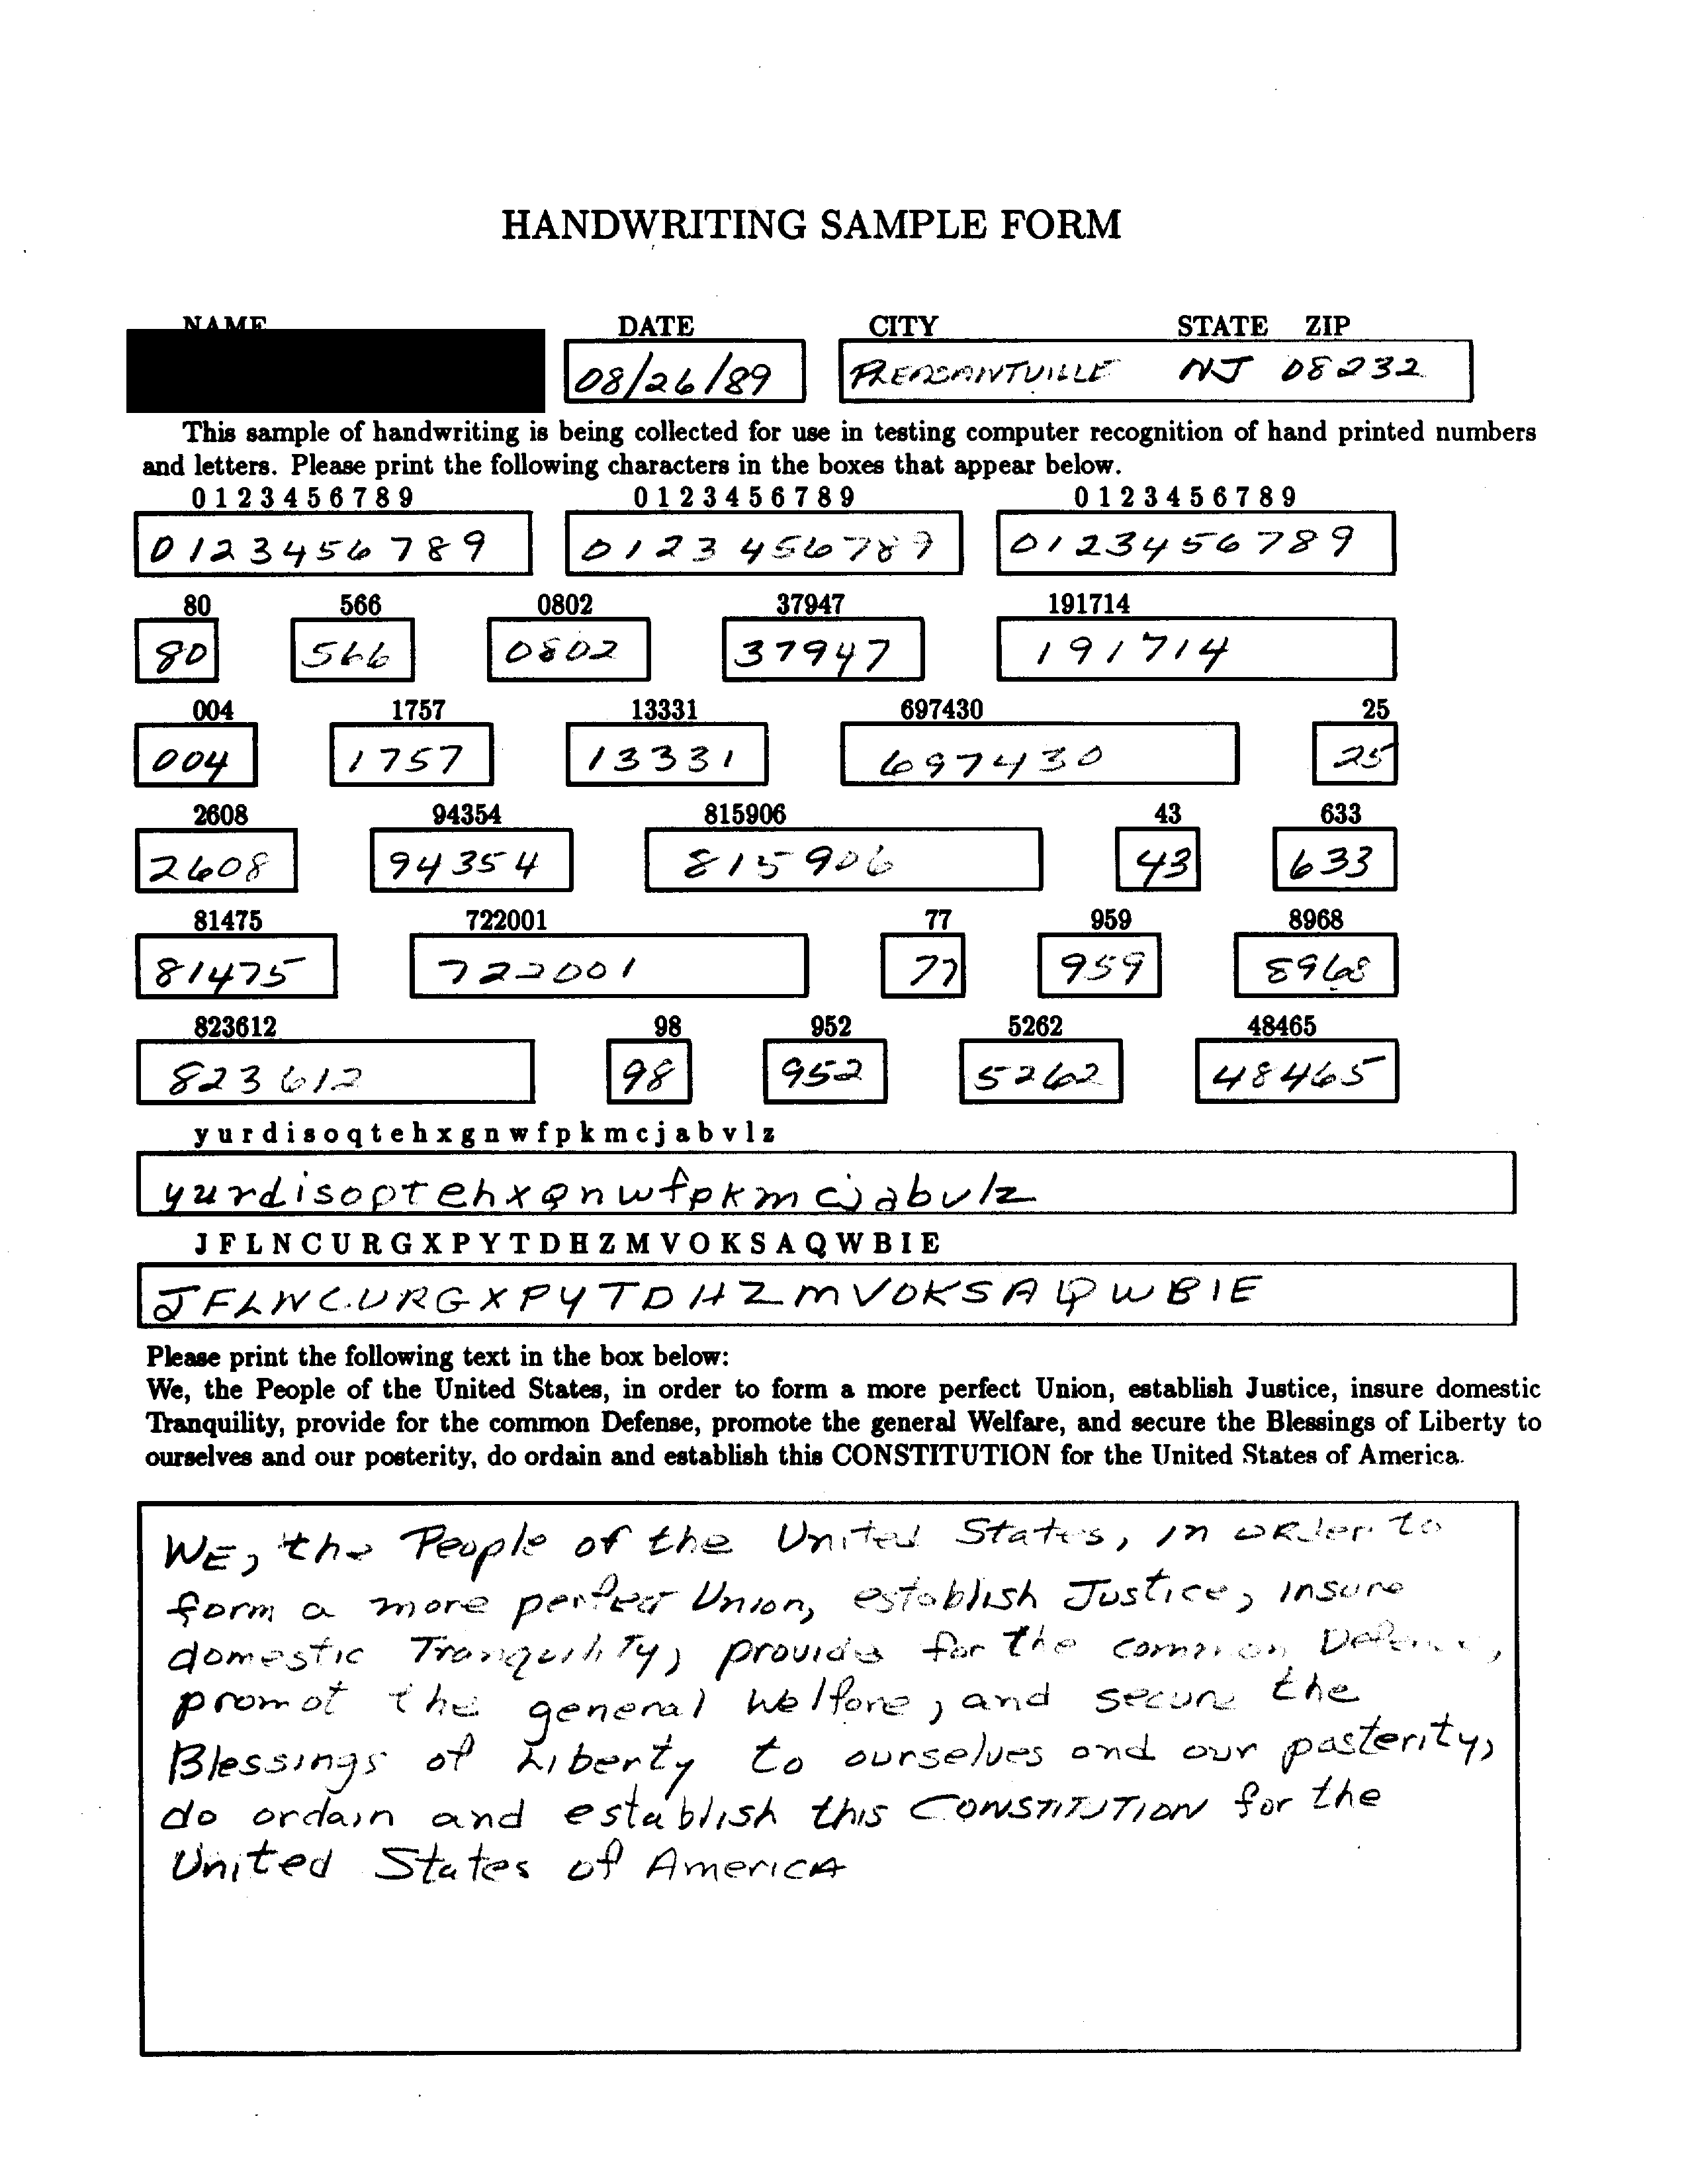 HANDWRITING SAMPLE FORM
NAME DATE CITY STATE ZIP
08/26/89 PLEASANTVILLE NJ 08232
This sample of handwriting is being collected for use in testing computer recognition of hand printed numbers
and letters. Please print the following characters in the boxes that appear below.
0 1 2 3 4 5 6 7 8 9 0 1 2 3 4 5 6 7 8 9 0 1 2 3 4 5 6 7 8 9
0123456789 0123456789 0123456789
80 566 0802 37947 191714
80 566 0802 37947 191714
004 1757 13331 697430 25
004 1757 13331 697430 25
2608 94354 815906 43 633
2608 94354 815906 43 633
81475 722001 77 959 8968
81475 722001 77 959 8968
823612 98 952 5262 48465
823612 98 952 5262 48465
y u r d i s o q t e h x g n w f p k m c j a b v l z
yurdisoptehxqnwfpkmcjabvlz
J F L N C U R G X P Y T D H Z M V O K S A Q W B I E
JFLNCURGXPYTDHZMVOKSAQWBIE
Please print the following text in the box below:
We, the People of the United States, in order to form a more perfect Union, establish Justice, insure domestic
Tranquility, provide for the common Defense, promote the general Welfare, and secure the Blessings of Liberty to
ourselves and our posterity, do ordain and establish this CONSTITUTION for the United States of America.
WE, the People of the United States, in order to
form a more perfect Union, establish Justice, insure
domestic Tranquility, provide for the common Defense,
promot the general Welfare, and secure the
Blessings of Liberty to ourselves and our pasterity,
do ordain and establish this CONSTITUTION for the
United States of America